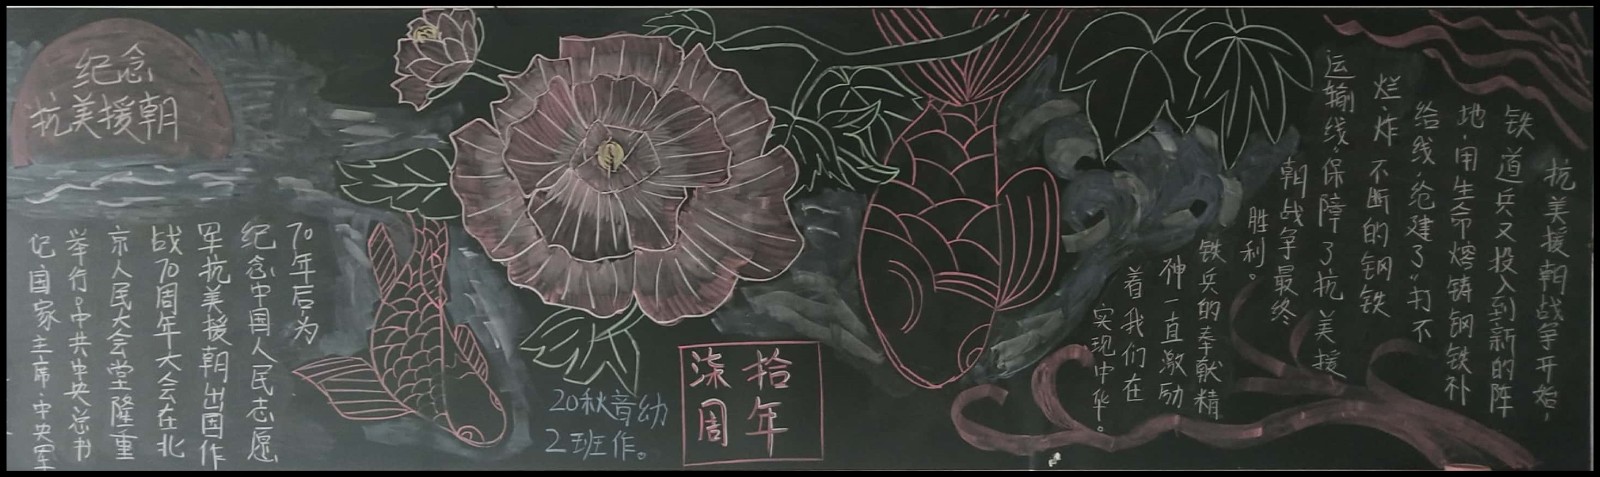 纪念
抗美援朝
70年后,为
纪念中国人民志愿
军抗美援朝出国作
战70周年大会在北
京人民大会堂隆重
举行。中共中央总书
记国家主席、中央军
20秋音幼
2班作。
柒拾
周年
抗美援朝战争开始,
铁道兵又投入到新的阵
地,用生命熔铸钢铁补
给线,抢建了“打不
烂,炸不断的钢铁
运输线,保障了抗美援
朝战争最终
胜利。
铁兵的奉献精
神一直激励
着我们在
实现中华。